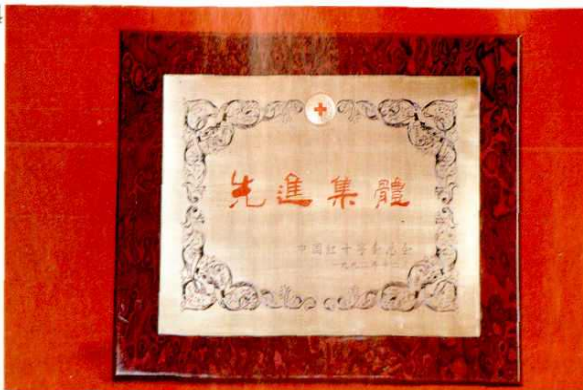 先進集體
中國红十字会总会